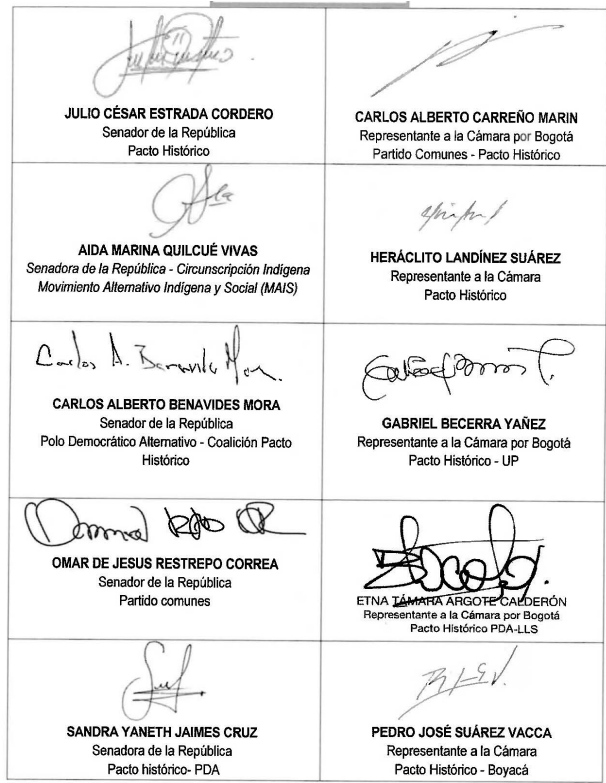 JULIO CÉSAR ESTRADA CORDERO
Senador de la República
Pacto Histórico
CARLOS ALBERTO CARREÑO MARIN
Representante a la Cámara por Bogotá
Partido Comunes - Pacto Histórico
AIDA MARINA QUILCUÉ VIVAS
Senadora de la República - Circunscripción Indígena
Movimiento Alternativo Indígena y Social (MAIS)
HERÁCLITO LANDÍNEZ SUÁREZ
Representante a la Cámara
Pacto Histórico
Carlos A. Benavides Mora.
CARLOS ALBERTO BENAVIDES MORA
Senador de la República
Polo Democrático Alternativo - Coalición Pacto
Histórico
GABRIEL BECERRA YAÑEZ
Representante a la Cámara por Bogotá
Pacto Histórico - UP
OMAR DE JESUS RESTREPO CORREA
Senador de la República
Partido comunes
ETNA TÁMARA ARGOTE CALDERÓN
Representante a la Cámara por Bogotá
Pacto Histórico PDA-LLS
SANDRA YANETH JAIMES CRUZ
Senadora de la República
Pacto histórico- PDA
PEDRO JOSÉ SUÁREZ VACCA
Representante a la Cámara
Pacto Histórico - Boyacá